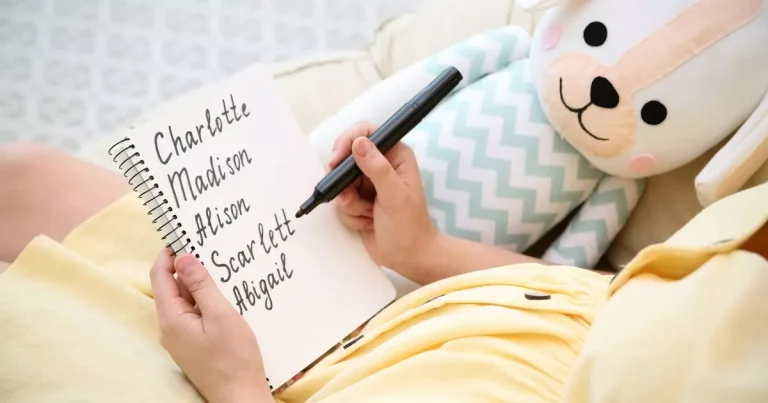 Charlotte
Madison
Alison
Scarlett
Abigail